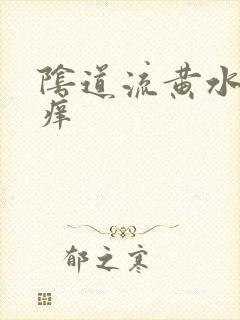 陰道流黄水
痒
郁之寒